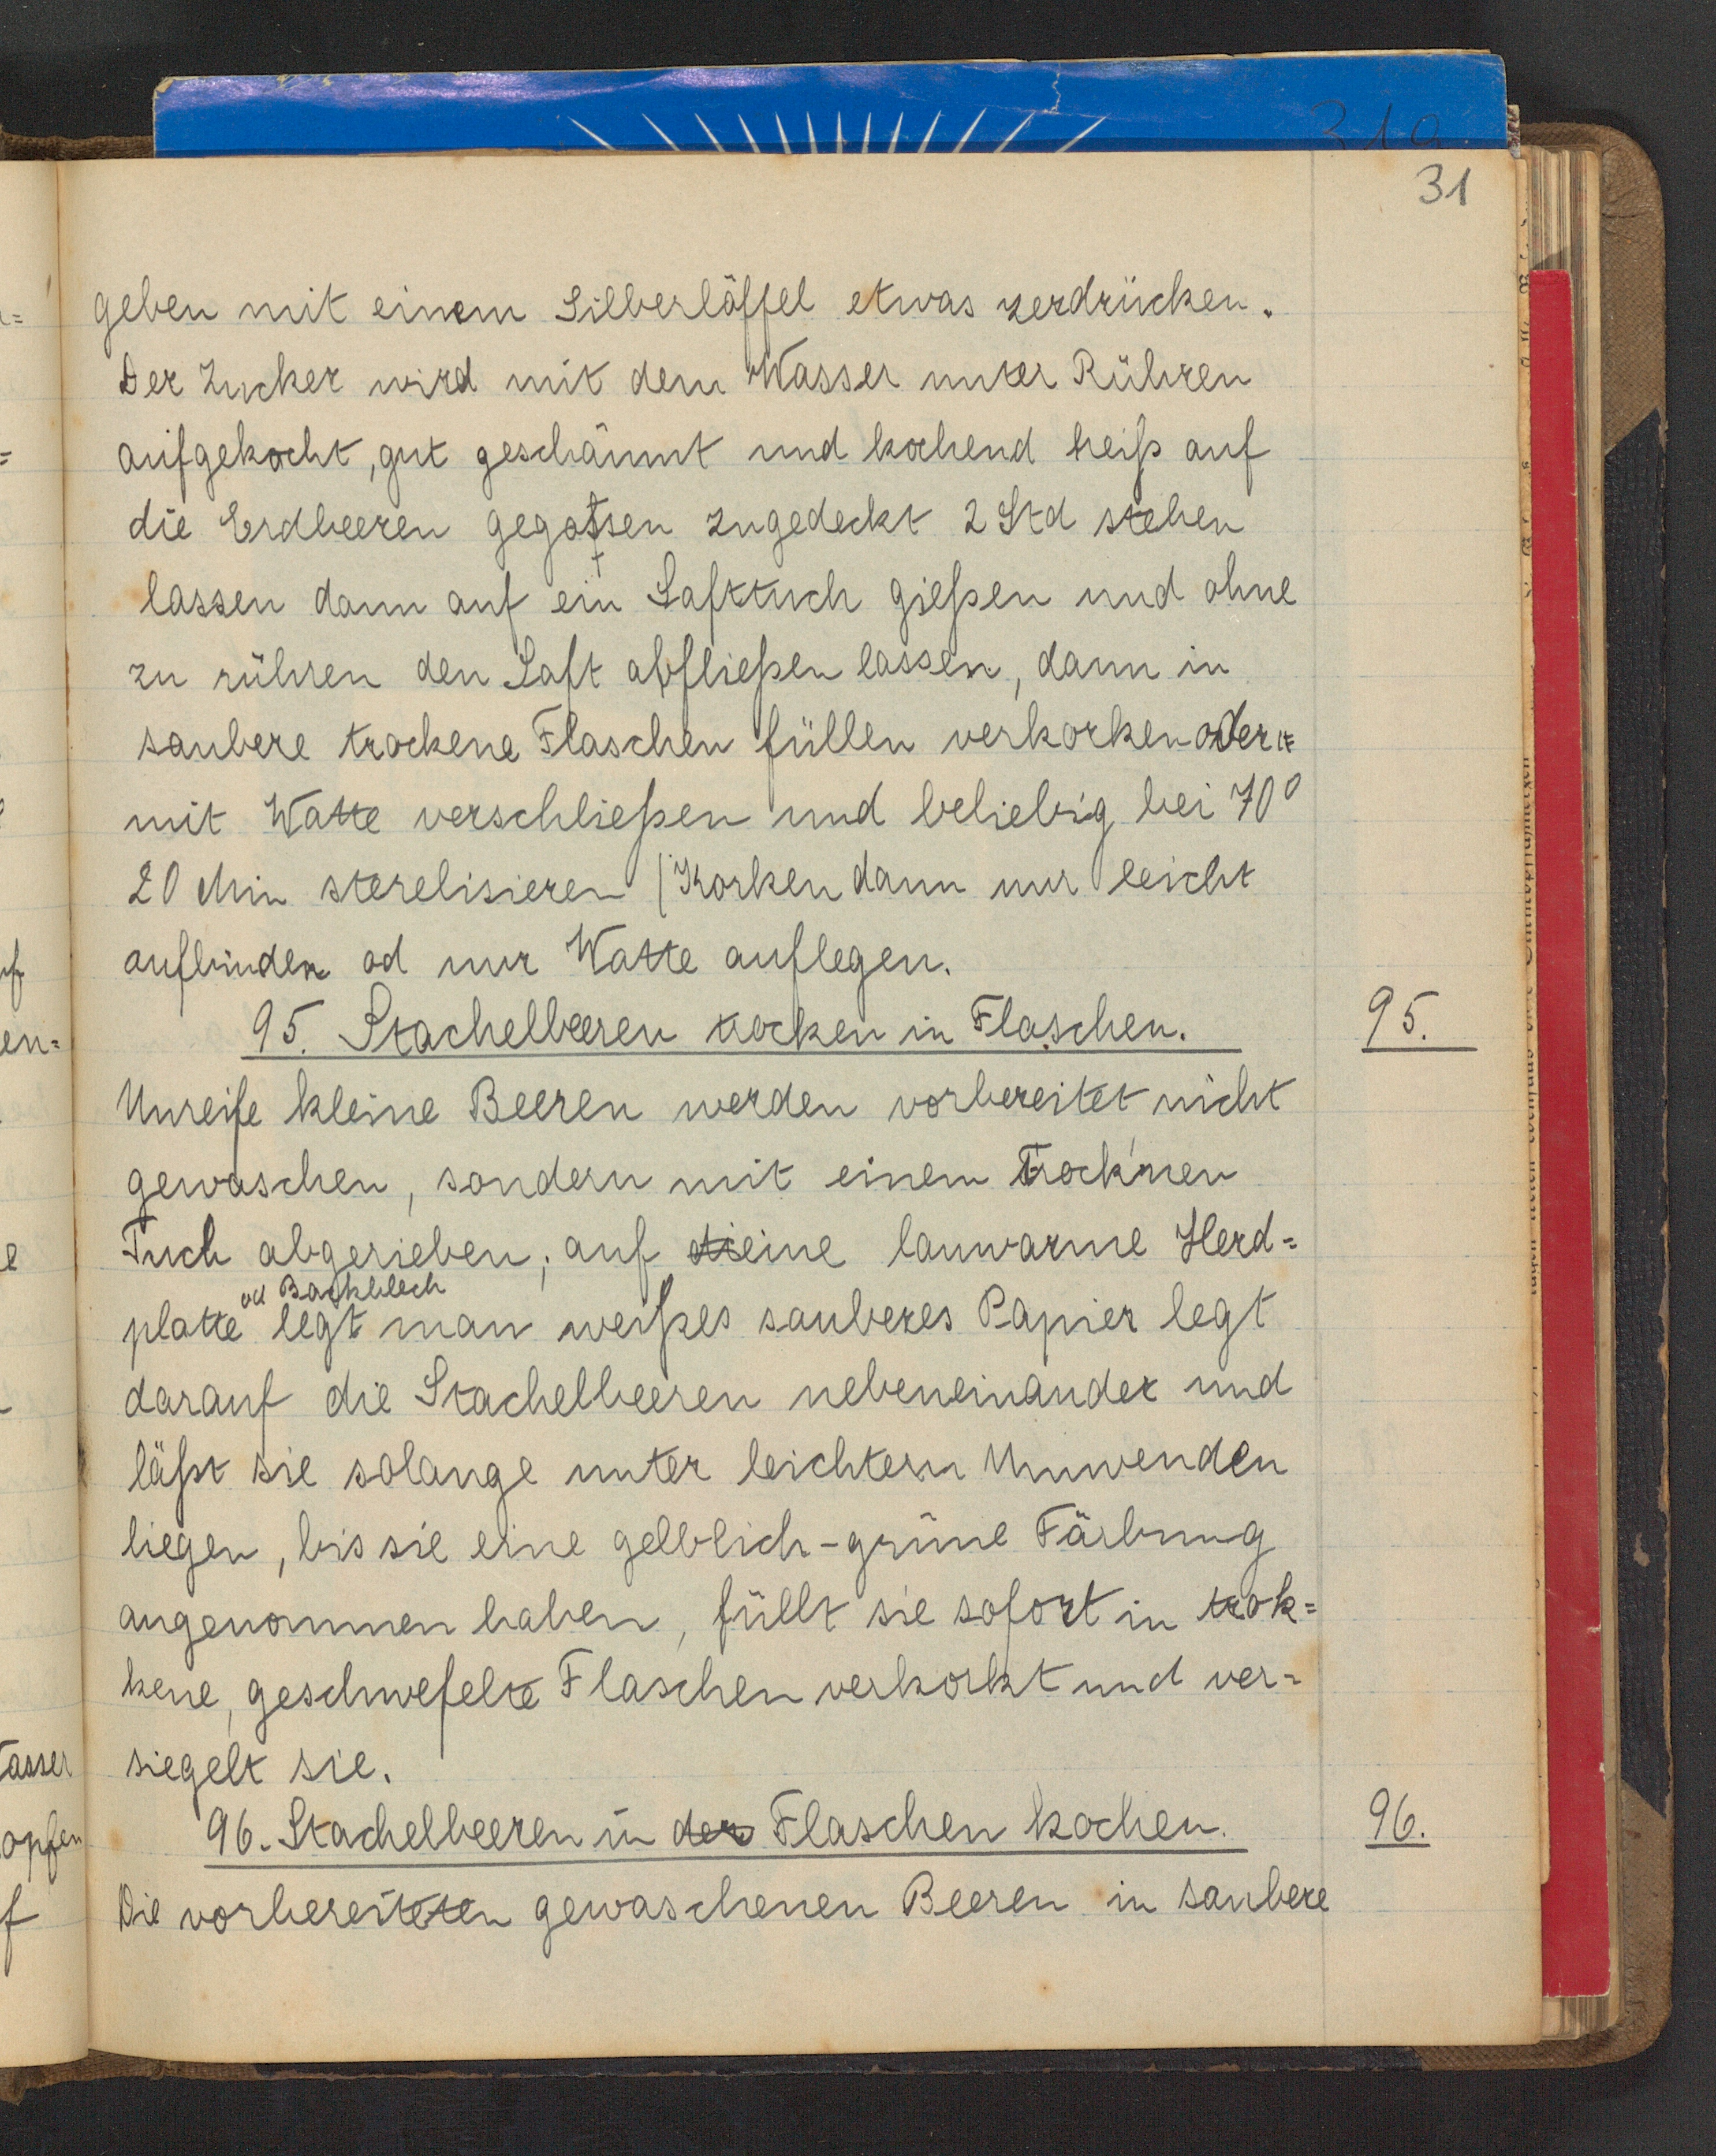 319
31
geben mit einem Silberlöffel etwas zerdrücken.
Der Zucker wird mit dem Wasser unter Rühren
aufgekocht, gut geschäumt und kochend heiß auf
die Erdbeeren gegossen zugedeckt 2 Std stehen
lassen dann auf ein Safttuch gießen und ohne
zu rühren den Saft abfließen lassen, dann in
saubere trockene Flaschen füllen verkorken oder
mit Watte verschließen und beliebig bei 70°
20 Min sterelisieren (Korken dann nur leicht
aufbinden od nur Watte auflegen.
95. Stachelbeeren trocken in Flaschen.
95.
Unreife kleine Beeren werden vorbereitet nicht
gewaschen, sondern mit einem Trock'nen
Tuch abgerieben; auf eine lauwarme Herd=
od Backblech
platte legt man weißes sauberes Papier legt
darauf die Stachelbeeren nebeneinander und
läßt sie solange unter leichtem Umwenden
liegen, bis sie eine gelblich-grüne Färbung
angenommen haben, füllt sie sofort in trok=
kene, geschwefelte Flaschen verkorkt und ver=
siegelt sie.
96. Stachelbeeren in der Flaschen kochen.
96.
Die vorbereiteten gewaschenen Beeren in saubere